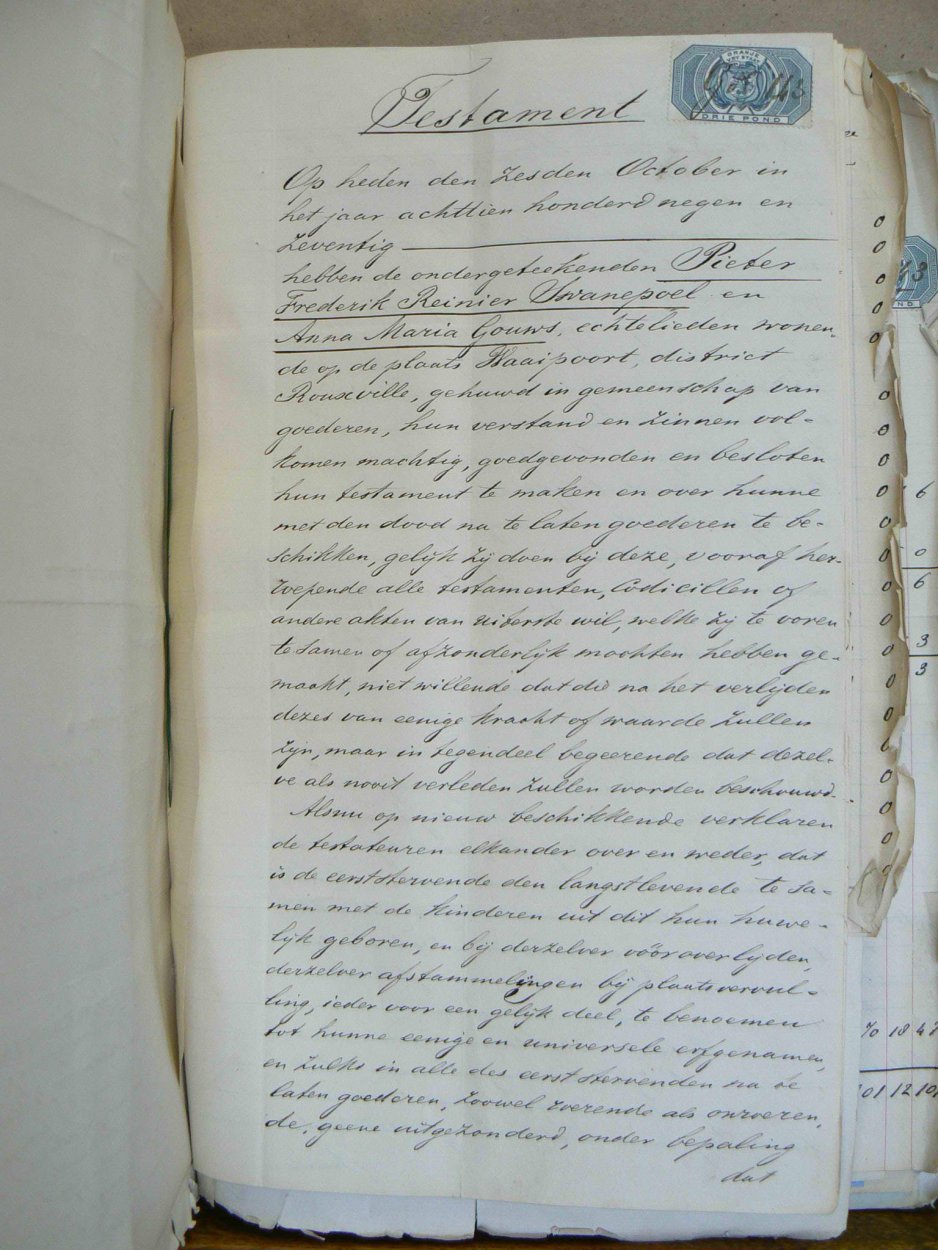 Testament
ORANJE
VRYSTAAT
DRIE POND
Op heden den zesden October in
het jaar achttien honderd negen en
zeventig
hebben de ondergeteekenden Pieter
Frederik Reinier Swanepoel en
Anna Maria Gouws, echtelieden wonen-
de op de plaats Waaipoort, district
Rouxville, gehuwd in gemeenschap van
goederen, hun verstand en zinnen vol-
komen machtig, goedgevonden en besloten
hun testament te maken en over hunne
met den dood na te laten goederen te be-
schikken, gelijk zij doen bij deze, vooraf her-
roepende alle testamenten, Codicillen of
andere akten van uiterste wil, welke zij te voren
te samen of afzonderlijk mochten hebben ge-
maakt, niet willende dat die na het verlijden
dezes van eenige kracht of waarde zullen
zijn, maar in tegendeel begeerende dat dezel-
ve als nooit verleden zullen worden beschouwd.
Alsnu op nieuw beschikkende verklaren
de testateuren elkander over en weder, dat
is de eerststervende den langstlevende te sa-
men met de kinderen uit dit hun huwe-
lijk geboren, en bij derzelver vóóroverlijden,
derzelver afstammelingen bij plaatsvervul-
ling, ieder voor een gelijk deel, te benoemen
tot hunne eenige en universele erfgenamen,
en zulks in alle des eerststervenden na te
laten goederen, zoowel roerende als onroeren-
de, geene uitgezonderd, onder bepaling
dat
6
0
6
3
3